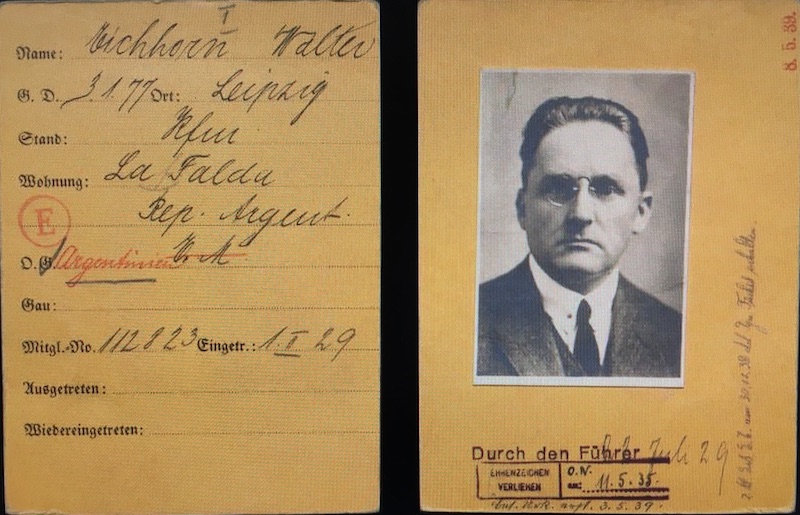 I
Name: Eichhorn Walter
G. D. 3.1.77 Ort: Leipzig
Stand: Kfm
Wohnung: La Falda
Rep. Argent.
E
O.G. Argentinien
Gau:
Mitgl.-No. 112823 Eingetr.: 1.II 29
Ausgetreten:
Wiedereingetreten:
8.5.39.
Durch den Führer Juli 29
EHRENZEICHEN VERLIEHEN
O.N. am: 11.5.35.
3.5.39.